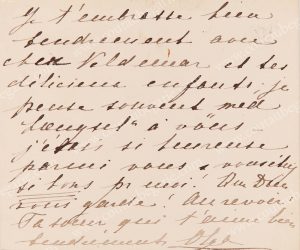 Je t'embrasse bien
tendrement avec
cher Valdemar et tes
délicieux enfants. je
pense souvent med
"længsel" à vous
j'étais si heureuse
parmi vous & vous étiez
si bons pr moi! Que Dieu
vous garde! Au revoir!
Ta soeur qui t'aime bien
tendrement Olga